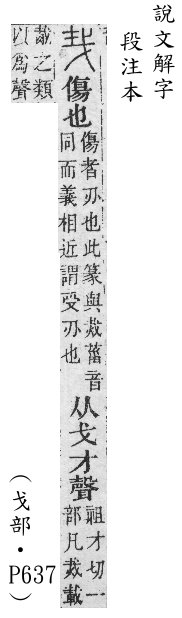 說文解字
段注本
𢦏 傷也
傷者刅也此篆與烖葘音
同而義相近謂受刅也
从戈才聲
祖才切一
部凡裁載
之類
以爲聲
(戈部・P637)